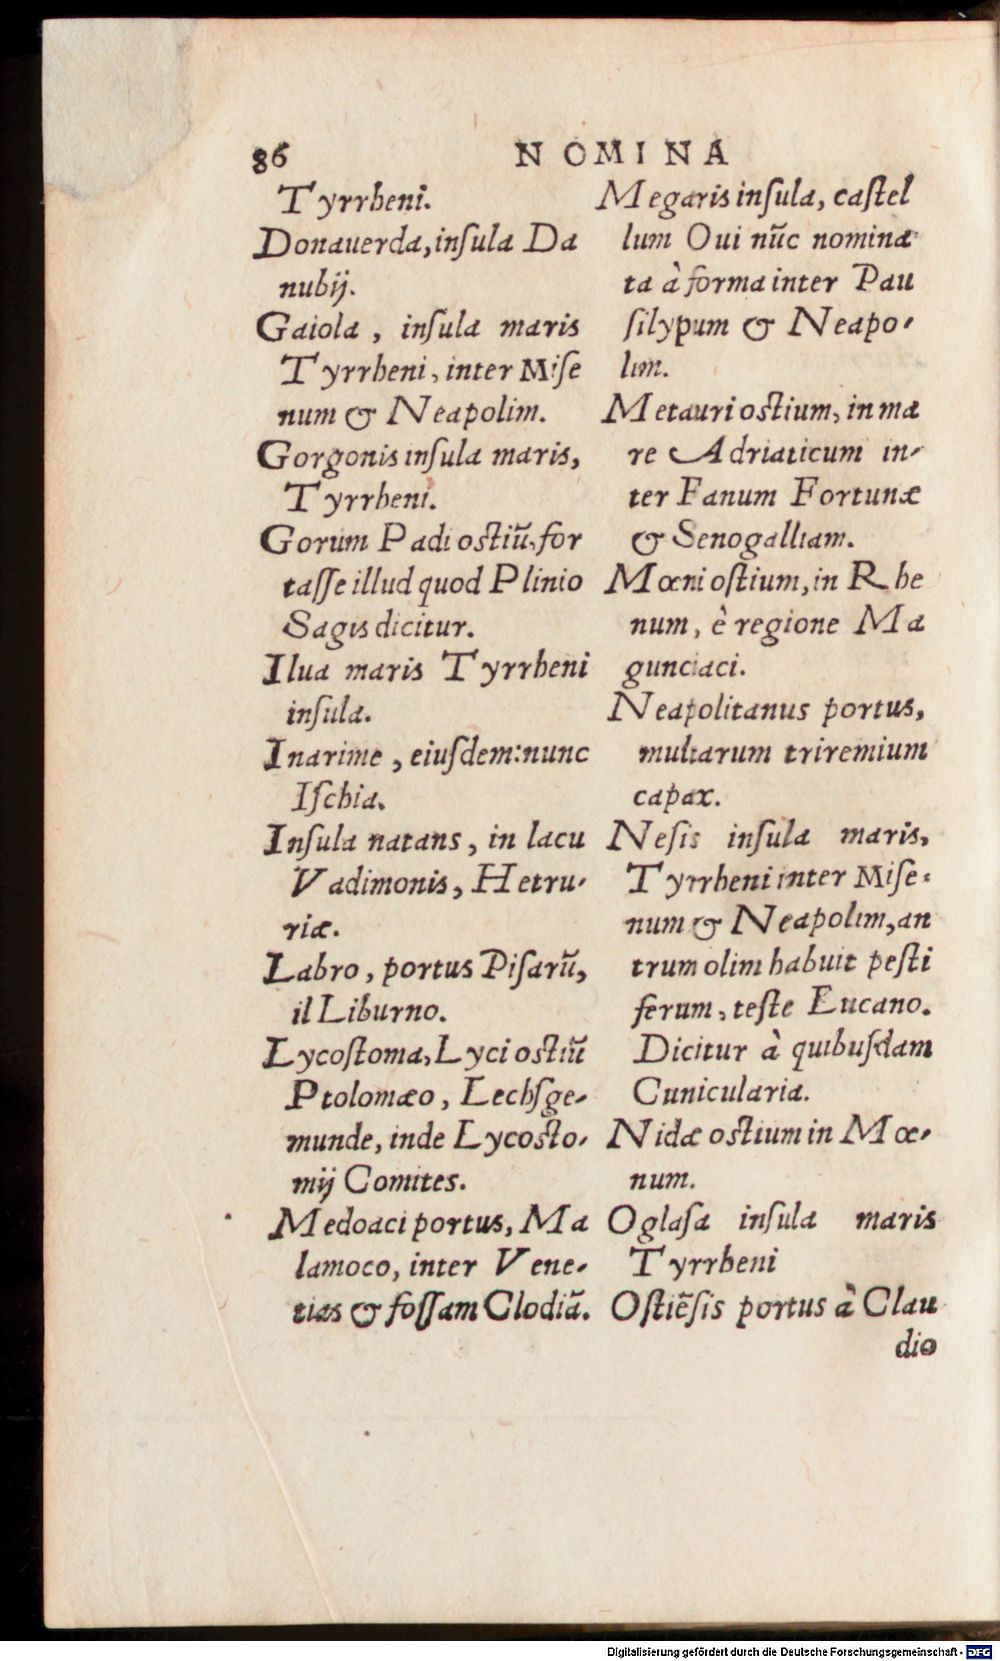 86 NOMINA
Tyrrheni.
Donauerda, inſula Da
nubij.
Gaiola, inſula maris
Tyrrheni, inter Miſe
num & Neapolim.
Gorgonis inſula maris,
Tyrrheni.
Gorum Padi oſtiũ, for
taſſe illud quod Plinio
Sagis dicitur.
Ilua maris Tyrrheni
inſula.
Inarime, eiuſdem: nunc
Iſchia.
Inſula natans, in lacu
Vadimonis, Hetru-
riæ.
Labro, portus Piſarũ,
il Liburno.
Lycoſtoma, Lyci oſtiũ
Ptolomæo, Lechſge-
munde, inde Lycoſto-
mij Comites.
Medoaci portus, Ma
lamoco, inter Vene-
tias & foſſam Clodiã.
Megaris inſula, caſtel
lum Oui nũc nomina
ta à forma inter Pau
ſilypum & Neapo-
lim.
Metauri oſtium, in ma
re Adriaticum in-
ter Fanum Fortunæ
& Senogalliam.
Mœni oſtium, in Rhe
num, è regione Ma
gunciaci.
Neapolitanus portus,
multarum triremium
capax.
Neſis inſula maris,
Tyrrheni inter Miſe-
num & Neapolim, an
trum olim habuit peſti
ferum, teſte Lucano.
Dicitur à quibuſdam
Cunicularia.
Nidæ oſtium in Mœ-
num.
Oglaſa inſula maris
Tyrrheni
Oſtiẽſis portus à Clau
dio
Digitalisierung gefördert durch die Deutsche Forschungsgemeinschaft - DFG